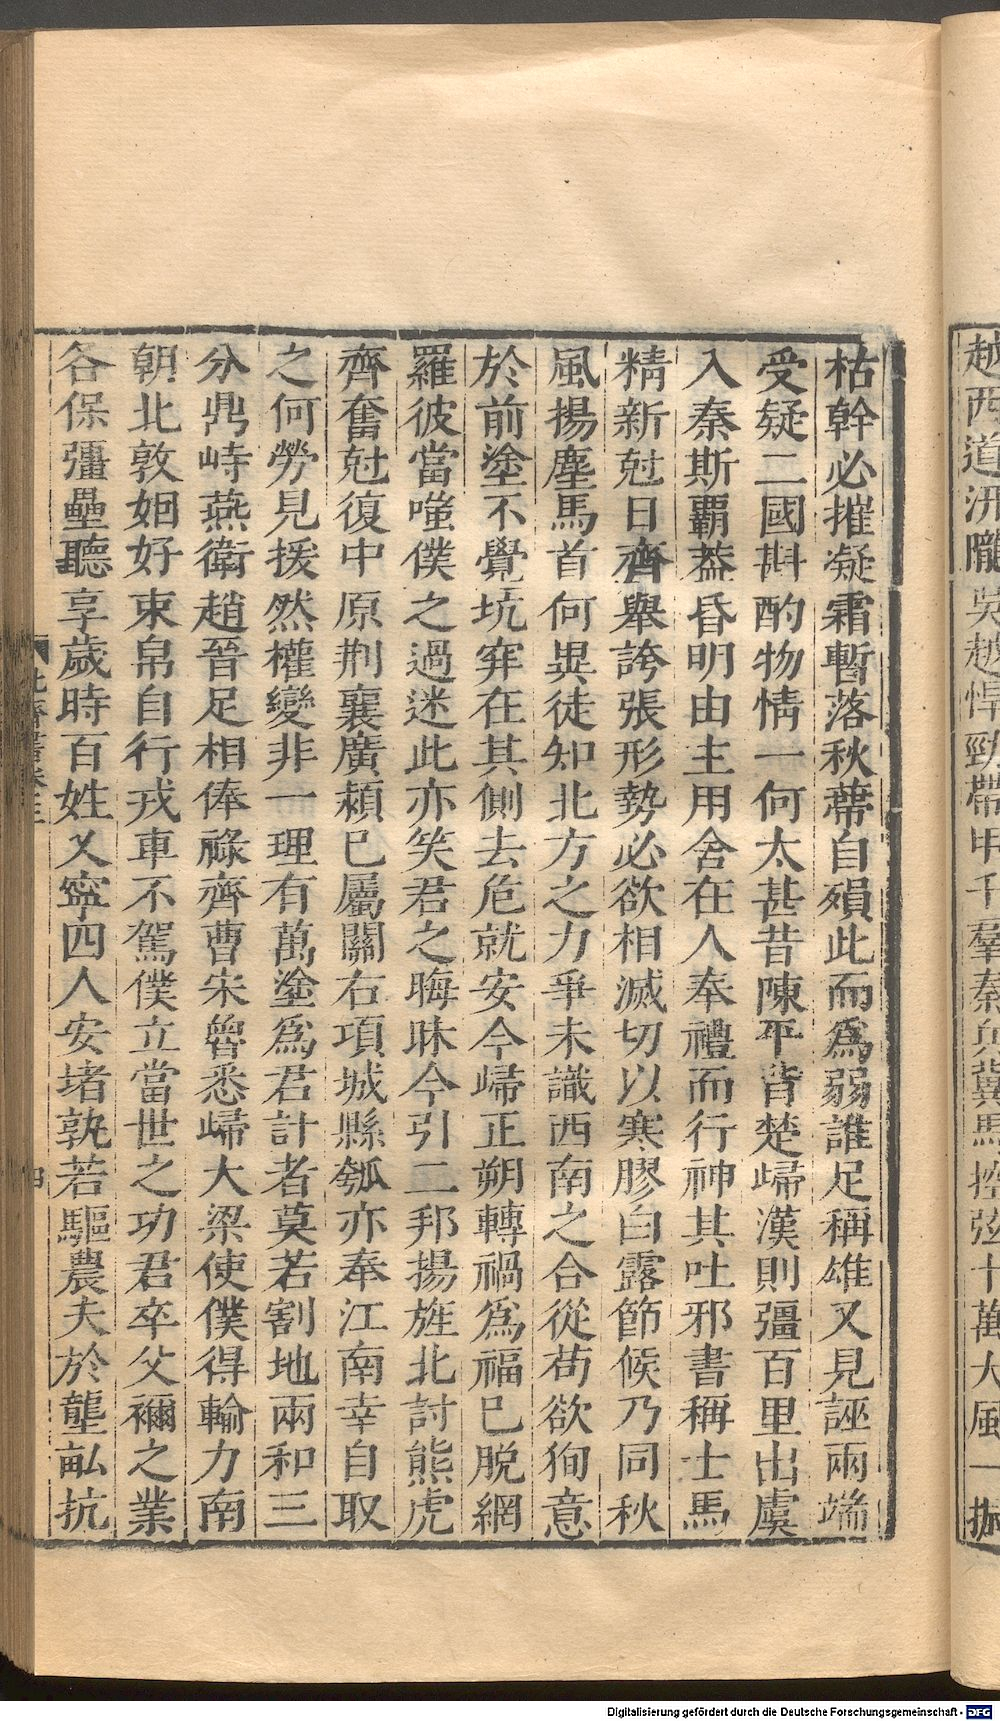 越西道汧隴吳越悍勁帶甲千羣秦兵冀馬控弦十萬大風一振
枯幹必摧凝霜暫落秋蔕自殞此而爲弱誰足稱雄又見誣兩端
受疑二國斟酌物情一何太甚昔陳平背楚歸漢則彊百里出虞
入秦斯霸蓋昏明由主用舍在人奉禮而行神其吐邪書稱士馬
精新尅日齊舉誇張形勢必欲相滅切以寒膠白露節候乃同秋
風揚塵馬首何異徒知北方之力爭未識西南之合從苟欲狥意
於前塗不覺坑穽在其側去危就安今歸正朔轉禍爲福已脫網
羅彼當嗤僕之過迷此亦笑君之晦昧今引二邦揚旌北討熊虎
齊奮尅復中原荆襄廣潁已屬關右項城縣瓠亦奉江南幸自取
之何勞見援然權變非一理有萬塗爲君計者莫若割地兩和三
分鼎峙燕衛趙晉足相俸祿齊曹宋魯悉歸大梁使僕得輸力南
朝北敦姻好束帛自行戎車不駕僕立當世之功君卒父禰之業
各保彊壘聽享歲時百姓乂寧四人安堵孰若驅農夫於壟畝抗
北齊書卷三
四
Digitalisierung gefördert durch die Deutsche Forschungsgemeinschaft - DFG